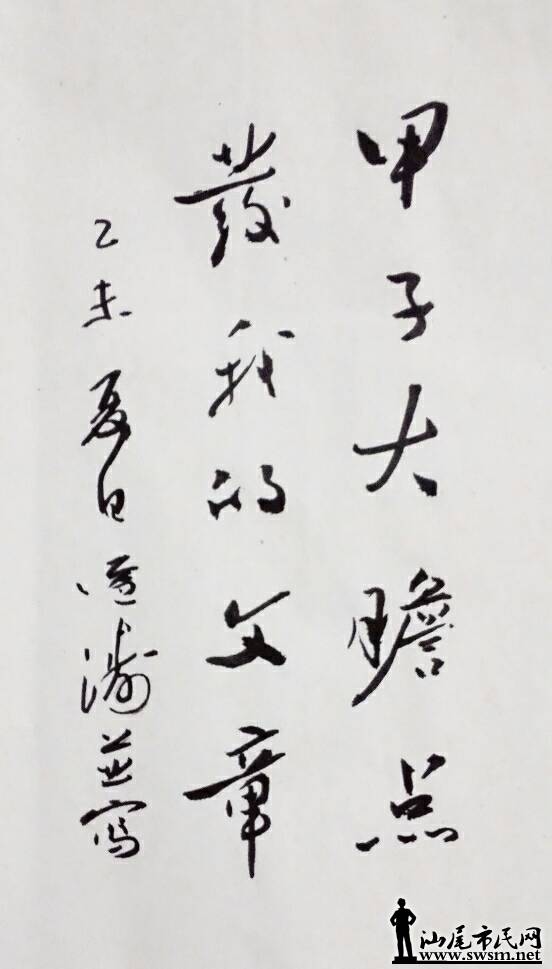 甲子大膽点
發我的文章
乙未夏日道濤並寫
汕尾市民网
www.swsm.net